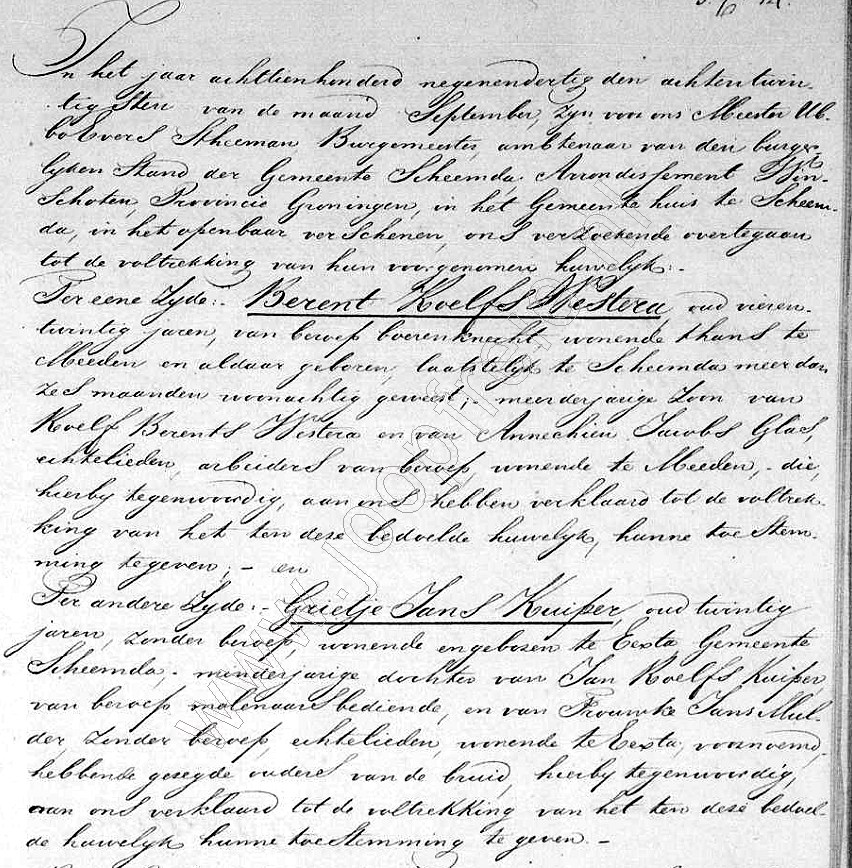 In het jaar achttienhonderd negenendertig den achtentwin-
tigsten van de maand September, zyn voor ons Meester Ub-
bo Evers Scheeman, Burgemeester, ambtenaar van den burger-
lyken Stand der Gemeente Scheemda, Arrondissement Win-
Schoten, Provincie Groningen, in het Gemeentehuis te Scheem-
da, in het openbaar verschenen, ons verzoekende overtegaan
tot de voltrekking van hun voorgenomen huwelyk:-
Ter eene Zyde:- Berent Roelfs Westera, oud vieren-
twintig jaren, van beroep boerenknecht, wonende thans te
Meeden en aldaar geboren, laatstelyk te Scheemda meer dan
zes maanden woonachtig geweest;- meerderjarige Zoon van
Roelf Berents Westera en van Annechien Jacobs Glas,
echtelieden, arbeiders van beroep, wonende te Meeden,- die,
hierby tegenwoordig, aan ons hebben verklaard tot de voltrek-
king van het ten deze bedoelde huwelyk, hunne toestem-
ming tegeven;- en
Ter andere Zyde:- Grietje Jans Kuiper, oud twintig
jaren, zonder beroep, wonende en geboren te Eexta, Gemeente
Scheemda,- minderjarige dochter van Jan Roelfs Kuiper,
van beroep molenaars bediende, en van Trouwke Jans Mul-
der, zonder beroep, echtelieden, wonende te Eexta, voornoemd,
hebbende gezegde ouders van de bruid, hierby tegenwoordig,
aan ons verklaard tot de voltrekking van het ten deze bedoel-
de huwelyk hunne toestemming te geven.-